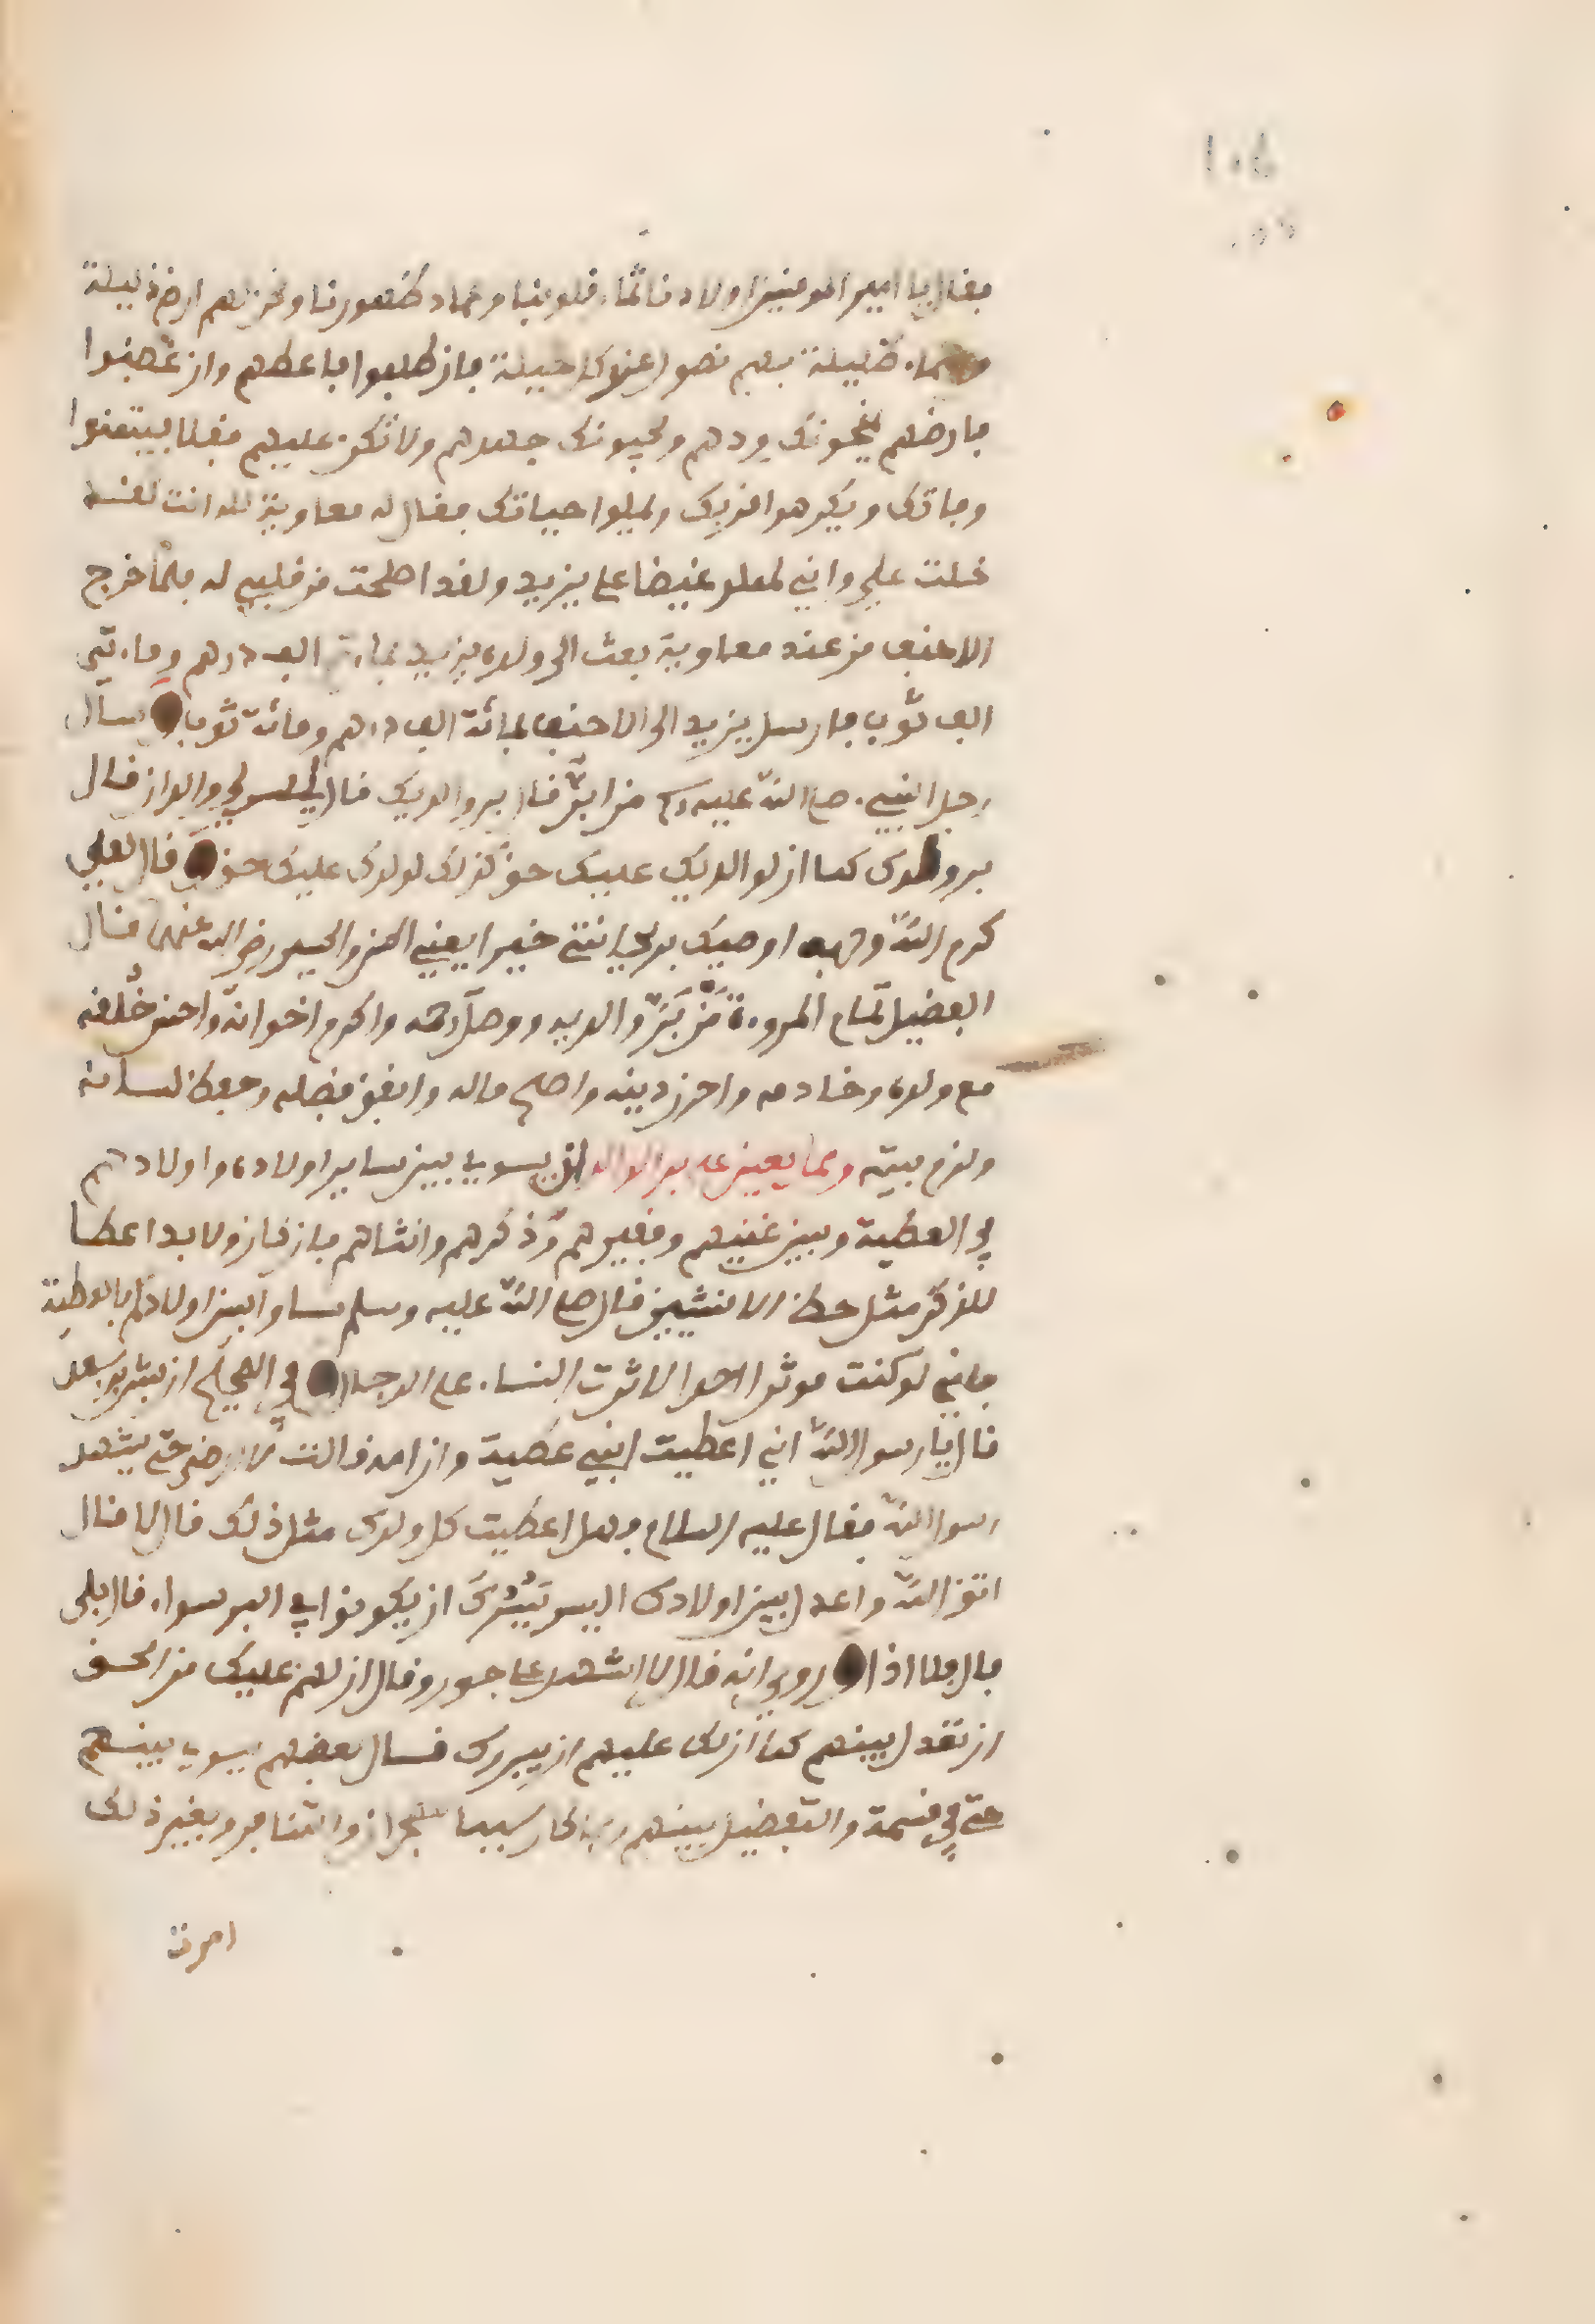 فقال يا امير المومنين اولادنا ثمار قلوبنا وعماد ظهورنا ونحن لهم ارض ذليلة
وسماء ظليلة بهم نصول عند كل جيلة فان طلبوا فاعطهم وان غضبوا
فارضهم يمنحونك ودهم ويحبونك جهدهم ولا تكن عليهم ثقيلا فيتمنوا
وفاتك ويكرهوا قربك ويملوا حياتك فقال له معاوية لله انت لقد
دخلت علي واني لمملو غيضا على يزيد ولقد اصلحت من قلبي له فلما خرج
الاحنف من عند معاوية بعث الى ولده يزيد بمائتي الف درهم ومائتي
الف ثوب فارسل يزيد الى الاحنف بمائة الف درهم ومائة ثوب سال
رجل النبي صلى الله عليه وسلم من ابر قال بر والديك قال ليس لي والدان قال
بر ولدك كما ان لوالديك عليك حق كذلك لولدك عليك حق قال لعلي
كرم الله وجهه اوصيك بريحانتي خيرا يعني الحسن والحسين رضي الله عنهما قال
الفضيل تمام المروءة من بر والديه ووصل رحمه واكرم اخوانه واحسن خلقه
مع ولده وخادمه واحرز دينه واصلح ماله وانفق فضله وحفظ لسانه
ولزم بيته ومما يعين على بر الوالد ان يسوي بين ساير اولاده واولادهم
في العطية وبين غنيهم وفقيرهم وذكرهم وانثاهم فان كان ولا بد اعطا
للذكر مثل حظ الانثيين قال صلى الله عليه وسلم ساووا بين اولادكم بالعطية
فاني لو كنت موثرا احدا لاثرت النساء على الرجال في الصحيح ان بشير بن سعد
قال يا رسول الله اني اعطيت ابني عطية وان امه قالت لا ارضى حتى يشهد
رسول الله فقال عليه السلام وهل اعطيت كل ولدك مثل ذلك قال لا قال
اتق الله واعدل بين اولادك اليس يسرك ان يكونوا في البر سواء قال بلى
قال فلا اذا روي انه قال لا اشهد على جور وقال ان لهم عليك من الحق
ان تعدل بينهم كما ان لك عليهم ان يبروك قسال بعضهم يسوي بينهم
حتى في قسمة والتفضيل بينهم ربما كان سببا للهجران والتنافر وبغير ذلك
امرت